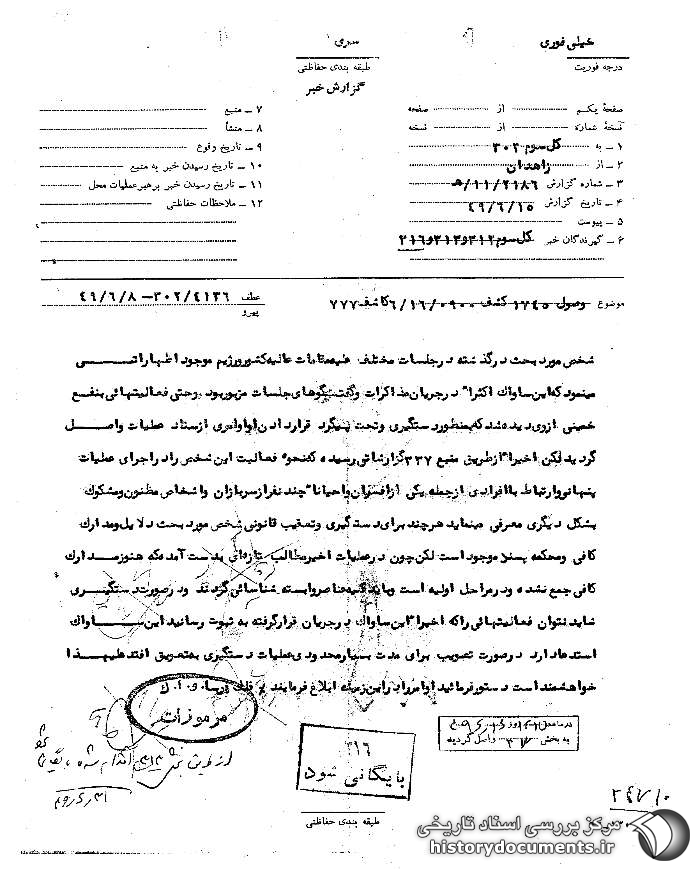 خیلی فوری
درجه فوریت
سری
طبقه بندی حفاظتی
گزارش خبر
صفحهٔ یکم از صفحه
نسخهٔ شماره از نسخه
۱ – به کل سوم ۳۰۲
۲ – از زاهدان
۳ – شماره گزارش ۱۱/۲۱۸۶/هـ
۴ – تاریخ گزارش ۴۹/۶/۱۵
۵ – پیوست
۶ – گیرندگان خبر کل سوم ۳۱۲و۳۱۳و۳۱۶
۷ – منبع
۸ – منشأ
۹ – تاریخ وقوع
۱۰ – تاریخ رسیدن خبر به منبع
۱۱ – تاریخ رسیدن خبر برهبر عملیات محل
۱۲ – ملاحظات حفاظتی
موضوع وصول ۱۷۴۵ کشف ۰۹۰۰/۶/۱۶ کاشف ۷۷۷
عطف ۳۰۲/۴۱۳۶ – ۴۹/۶/۸
پیرو
شخص مورد بحث در گذشته در جلسات مختلف علیه مقامات عالیه کشور و رژیم موجود اظهاراتی
مینمود که این ساواک اکثرا" در جریان مذاکرات و گفتگوهای جلسات مزبور بود وحتی فعالیتهائی بنفع
خمینی از وی دیده شد که بمنظور دستگیری و تحت پیگرد قرار دادن او اوامری از ستاد عملیات واصل
گردید لکن اخیرا" از طریق منبع ۳۳۷ گزارشاتی رسیده که نحوه فعالیت این شخص را در اجرای عملیات
پنهانی وارتباط با افرادی از جمله یکی از افسران واحیانا" چند نفر از سربازان و اشخاص مظنون ومشکوک
بشکل دیگری معرفی مینماید هرچند برای دستگیری وتعقیب قانونی شخص مورد بحث دلایل ومدارک
کافی ومحکمه پسند موجود است لکن چون در عملیات اخیر مطالب تازه‌ای بدست آمده که هنوز مدارک
کافی جمع نشده و در مراحل اولیه است وباید کلیه عناصر وابسته شناسائی گردند و در صورت دستگیری
شاید نتوان فعالیتهائی راکه اخیرا" این ساواک در جریان قرار گرفته به ثبوت رسانید این ساواک
استدعا دارد در صورت تصویب برای مدت بسیار محدودی عملیات دستگیری بتعویق افتد علیهذا
خواهشمند است دستور فرمائید اوامر را در این زمینه ابلاغ فرمایند
مرموزات
به بخش واصل گردید
۳۱۶
بایگانی شود
طبقه بندی حفاظتی
مرکز بررسی اسناد تاریخی
historydocuments.ir